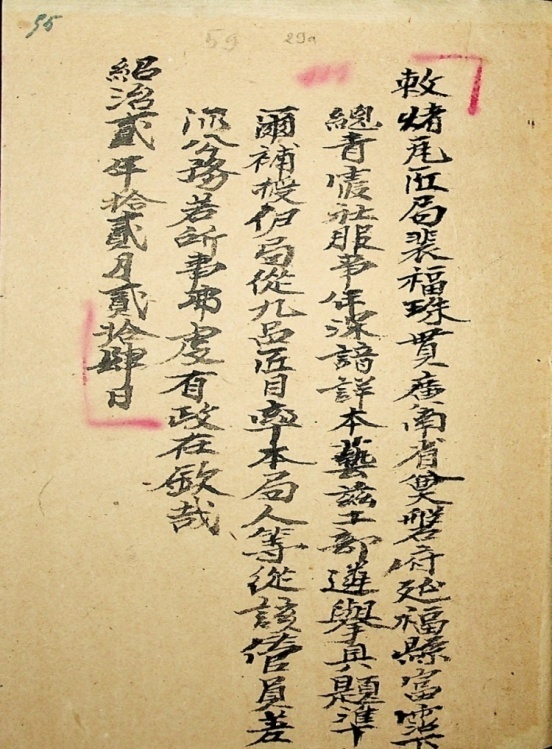 95
59
29a
敕瓦匠局裴福珠貫廣南省奠磐府延福縣富霑下
總青社服事年深諳詳本藝茲工部遴舉具題準
爾補授伊局從九品匠目率本局人等從該管員差
派公務若所事弗虔有政在欽哉
紹治貳年拾貳月貳拾肆日